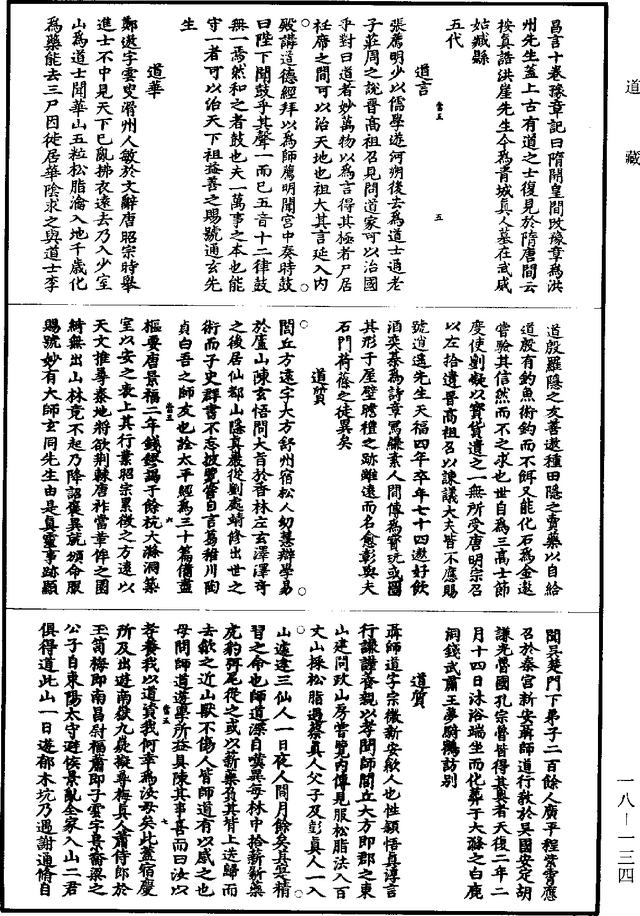 道藏
昌言十卷豫章記曰隋開皇間改豫章爲洪
州先生蓋上古有道之士復見於隋唐間云
按真誥洪崖先生今爲青城真人墓在武威
姑臧縣
五代
道言
張薦明少以儒學遊河朔後去爲道士通老
子莊周之說晉高祖召見問道家可以治國
乎對曰道者妙萬物以爲言得其極者尸居
袵席之間可以治天地也祖大其言延入内
殿講道德經拜以爲師薦明聞宮中奏時鼓
曰陛下聞鼓乎其聲一而已五音十二律鼓
無一焉然和之者鼓也夫一萬事之本也能
守一者可以治天下祖益善之賜號通玄先
生
道華
鄭遨字雲叟滑州人敏於文辭唐昭宗時舉
進士不中見天下已亂拂衣遠去乃入少室
山爲道士聞華山五粒松脂淪入地千歲化
爲藥能去三尸因徙居華陰求之與道士李
道殷羅隱之友善遨種田隱之賣藥以自給
道殷有釣魚術鈎而不餌又能化石爲金遨
嘗驗其信然而不之求也世目爲三高士節
度使劉凝以寶貨遺之一無所受唐明宗召
以左拾遺晉高祖召以諫議大夫皆不應賜
號逍遙先生天福四年卒年七十四遨好飲
酒奕棊爲詩章寫縑素人間傳爲寶玩或圖
其形于屋壁體種之跡雖遠而名愈彰與夫
石門荷蓧之徒異矣
道質
閭丘方遠字大方舒州宿松人幼慧辯學易
於廬山陳玄悟問大旨於香林左玄澤澤奇
之後居仙都山隱真巖從劉處靖修出世之
術而子史群書不忘披覽嘗自言葛稚川陶
貞白吾之師友也詮太平經爲三十篇備盡
樞要唐景福二年錢鏐謁于餘杭大滌洞築
室以安之表上其行業昭宗累徵之方遠以
天文推尋秦地將欲荆棘唐祚當革侔之園
綺無出山林竟不起乃降詔襃異就頒命服
賜號妙有大師玄同先生由是真靈事跡顯
聞吴楚門下弟子二百餘人廣平程紫霄應
召於秦宮新安聶師道行教於吴國安定胡
謙光魯國孔宗魯皆得其奧者天復二年二
月十四日沐浴端坐而化葬于大滌之白鹿
洞錢武肅王夢騎鶴訪别
道質
聶師道字宗微新安歙人也性穎悟真淳言
行謙謹養親以孝聞師閭丘大方即郡之東
山建問政山房嘗覽内傳見服松脂法入百
丈山採松脂遇蔡真人父子及彭真人一入
山遠逢三仙人一日夜人間月餘矣其真精
習之命也師道深自嘆異每林中拾薪斫藥
虎豹弭尾從之或以薪藥負其背上送歸而
去歙之近山獸不傷人皆師道有以感之也
母問師道遊學所益具陳其事喜而曰汝以
孝養我以道資我何幸爲汝母矣此蓋宿慶
所及出遊南嶽九疑擬尋梅真人蕭侍郎於
玉笥梅即南昌尉福蕭即子雲字景喬梁之
公子自東陽太守避侯景亂全家入山二君
俱得道此山一日遊郁木坑乃遇謝通脩自
一八—一三四